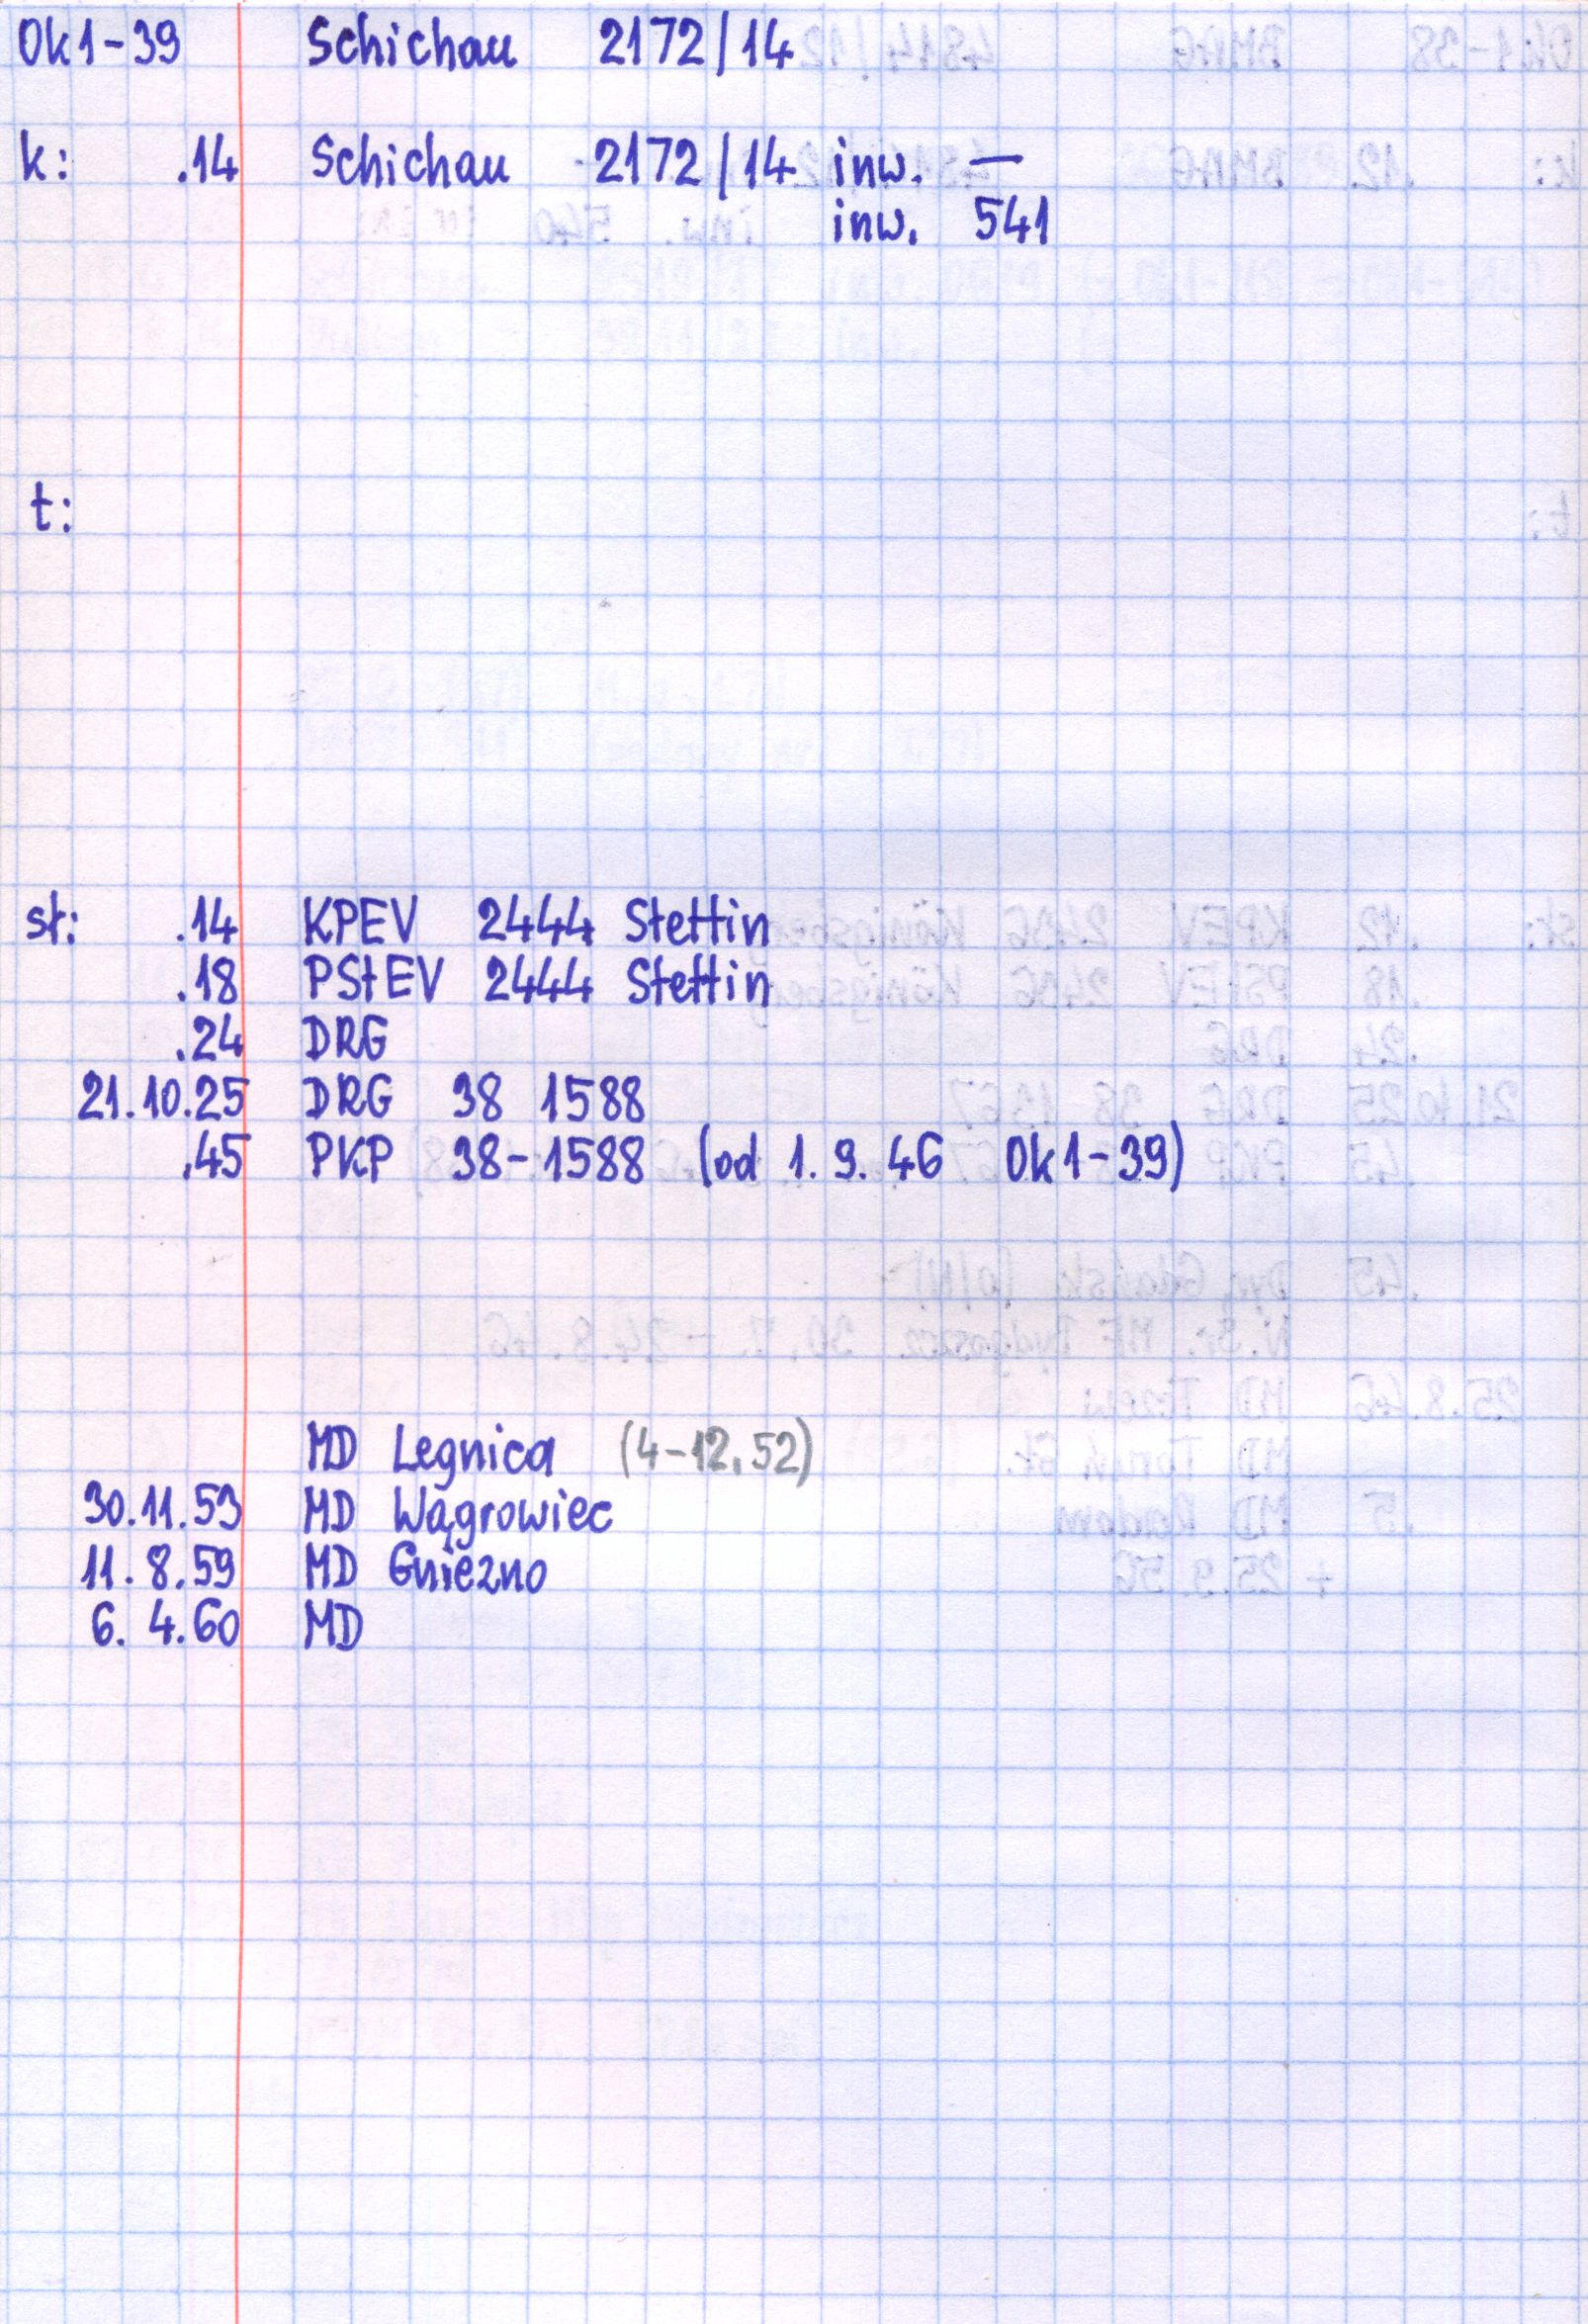 Ok1-39 Schichau 2172/14
k: .14 Schichau 2172/14 inw. —
inw. 541
t:
st: .14 KPEV 2444 Stettin
.18 PStEV 2444 Stettin
.24 DRG
21.10.25 DRG 38 1588
.45 PKP 38-1588 (od 1.9.46 Ok1-39)
MD Legnica (4-12.52)
30.11.53 MD Wągrowiec
11.8.59 MD Gniezno
6.4.60 MD